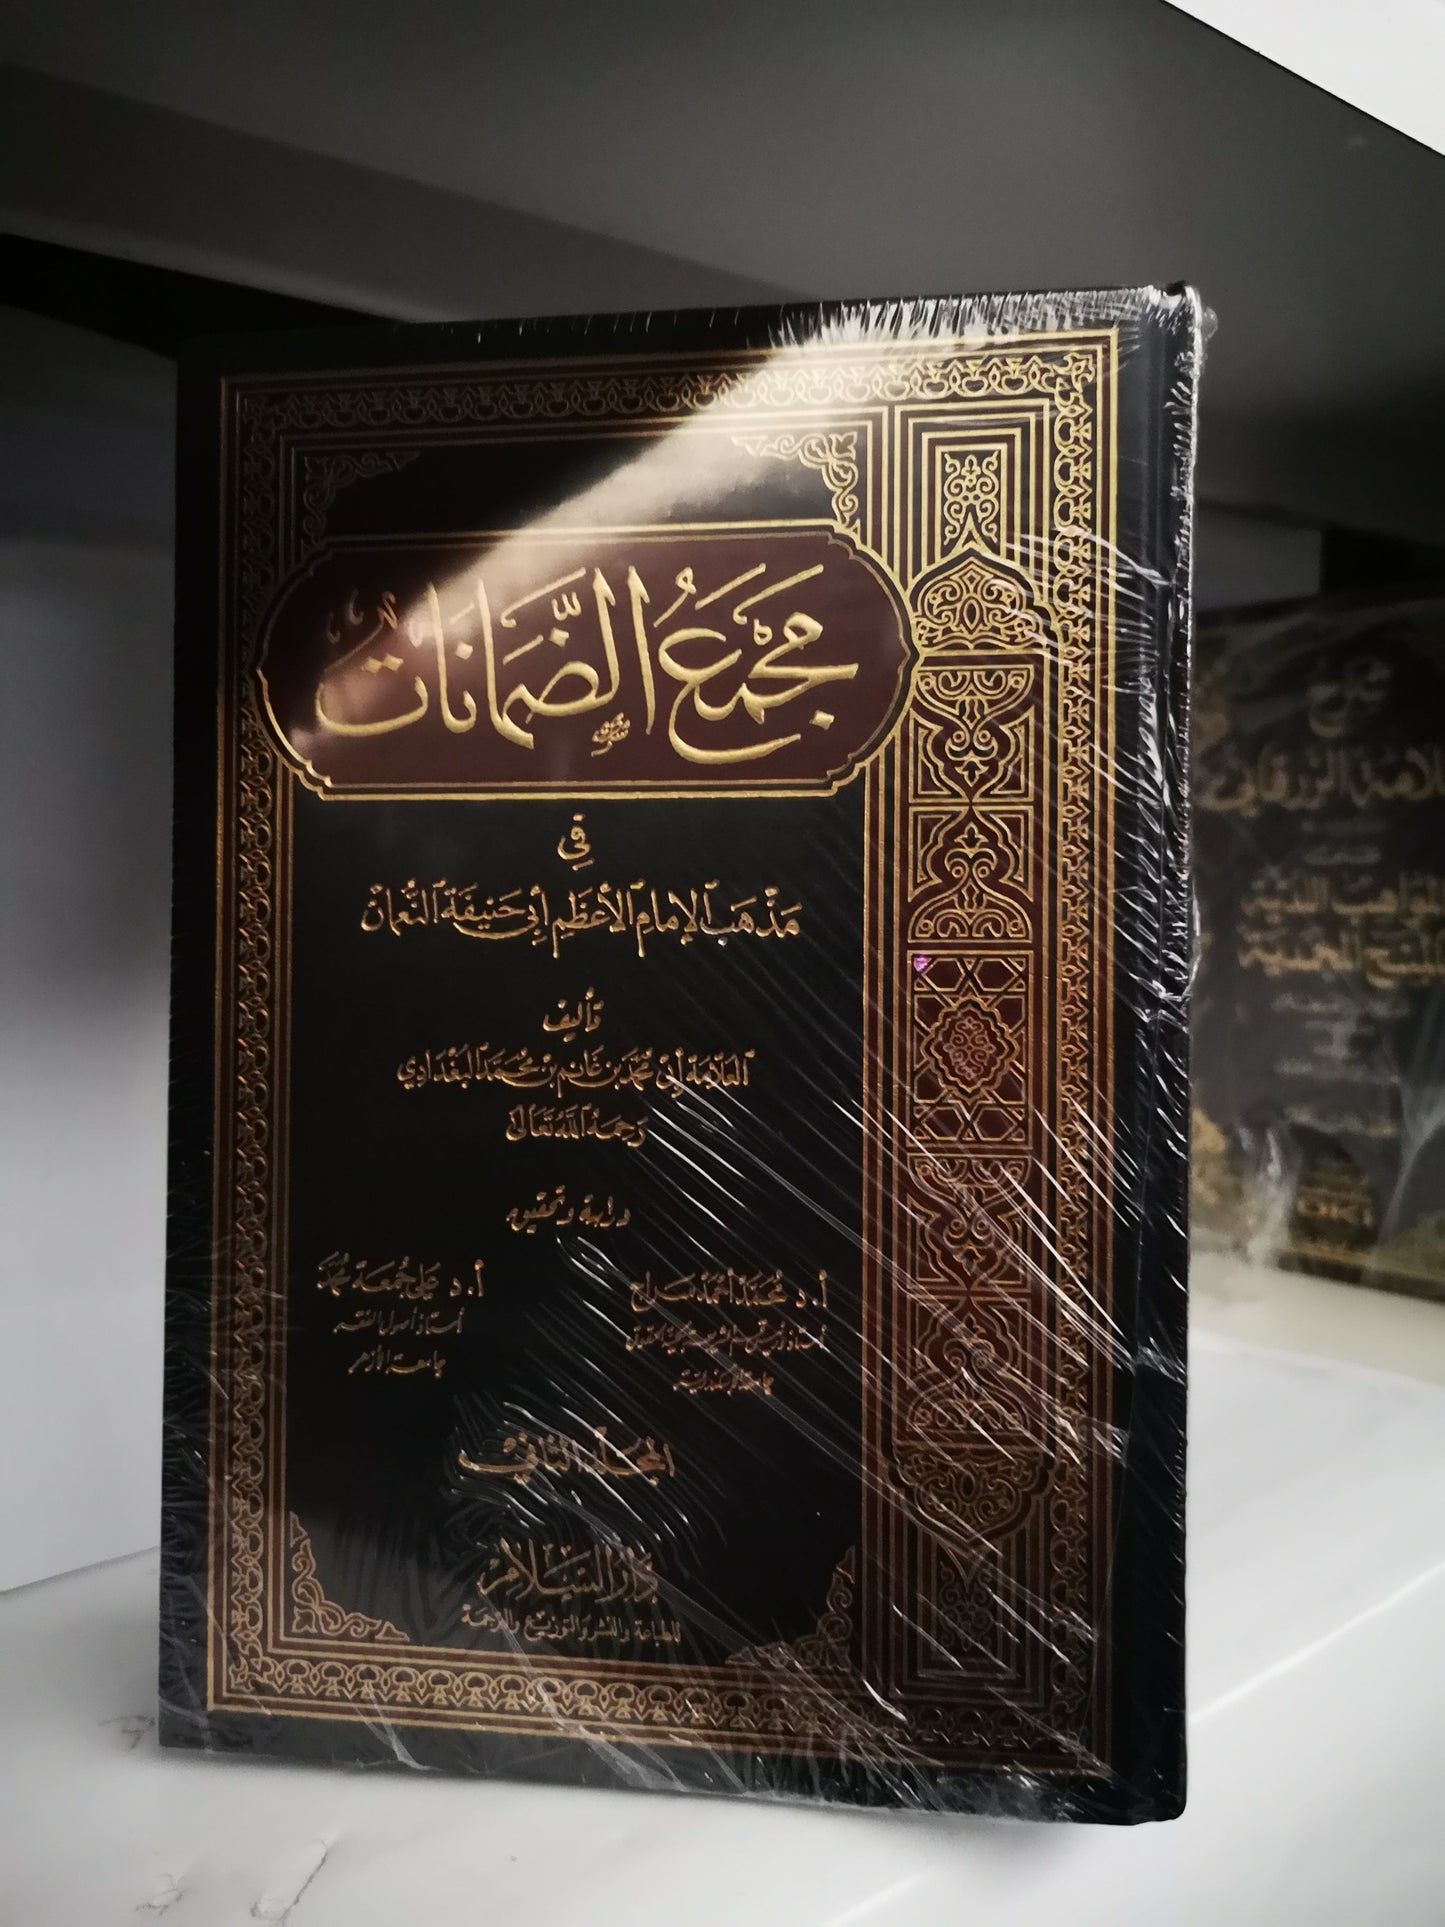 مَجْمَعُ الضَّمَانَاتِ
فِي
مَذْهَبِ الإِمَامِ الأَعْظَمِ أَبِي حَنِيفَةَ النُّعْمَانِ
تأليف
العَلَّامَة أَبِي مُحَمَّد بْن غَانِم بْن مُحَمَّد البَغْدَادِي
رَحِمَهُ اللَّهُ تَعَالَى
دراسة وتحقيق
أ.د مُحَمَّد أَحْمَد سِرَاج
أ.د عَلِي جُمْعَة مُحَمَّد
أستاذ ورئيس قسم الشريعة بكلية الحقوق
أستاذ أصول الفقه
جامعة الإسكندرية
جامعة الأزهر
المُجَلَّد الثَّانِي
دَارُ السَّلَامِ
للطباعة والنشر والتوزيع والترجمة
شرح
الزرقاني
المواهب اللدنية
بالمنح المحمدية
DKi